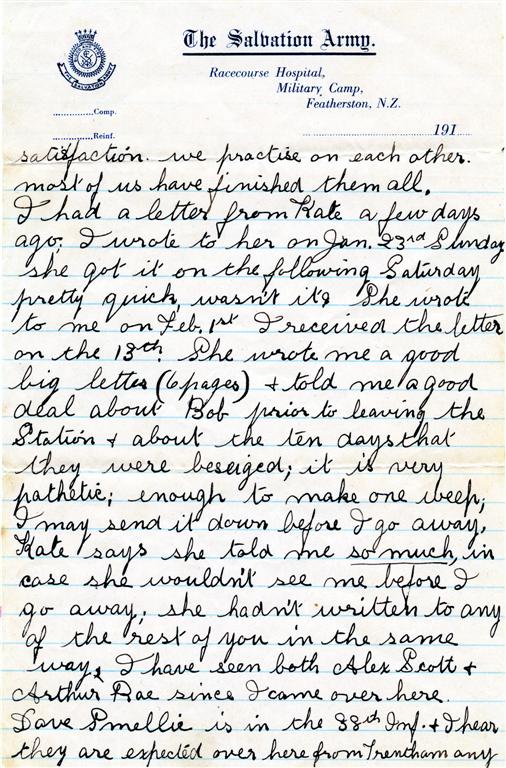 The Salvation Army.
Racecourse Hospital,
Military Camp,
Featherston, N.Z.
..............Comp.
..............Reinf.
191
satisfaction. we practise on each other.
most of us have finished them all.
I had a letter from Kate a few days
ago; I wrote to her on Jan. 23rd Sunday
she got it on the following Saturday
pretty quick, wasn't it? She wrote
to me on Feb. 1st I received the letter
on the 13th. She wrote me a good
big letter (6 pages) & told me a good
deal about Bob prior to leaving the
Station & about the ten days that
they were beseiged; it is very
pathetic; enough to make one weep;
I may send it down before I go away.
Kate says she told me so much, in
case she wouldn't see me before I
go away; she hadn't written to any
of the rest of you in the same
way. I have seen both Alex Scott &
Arthur Rae since I came over here.
Dave is in the 38th Inf. & I hear
they are expected over here from Trentham any